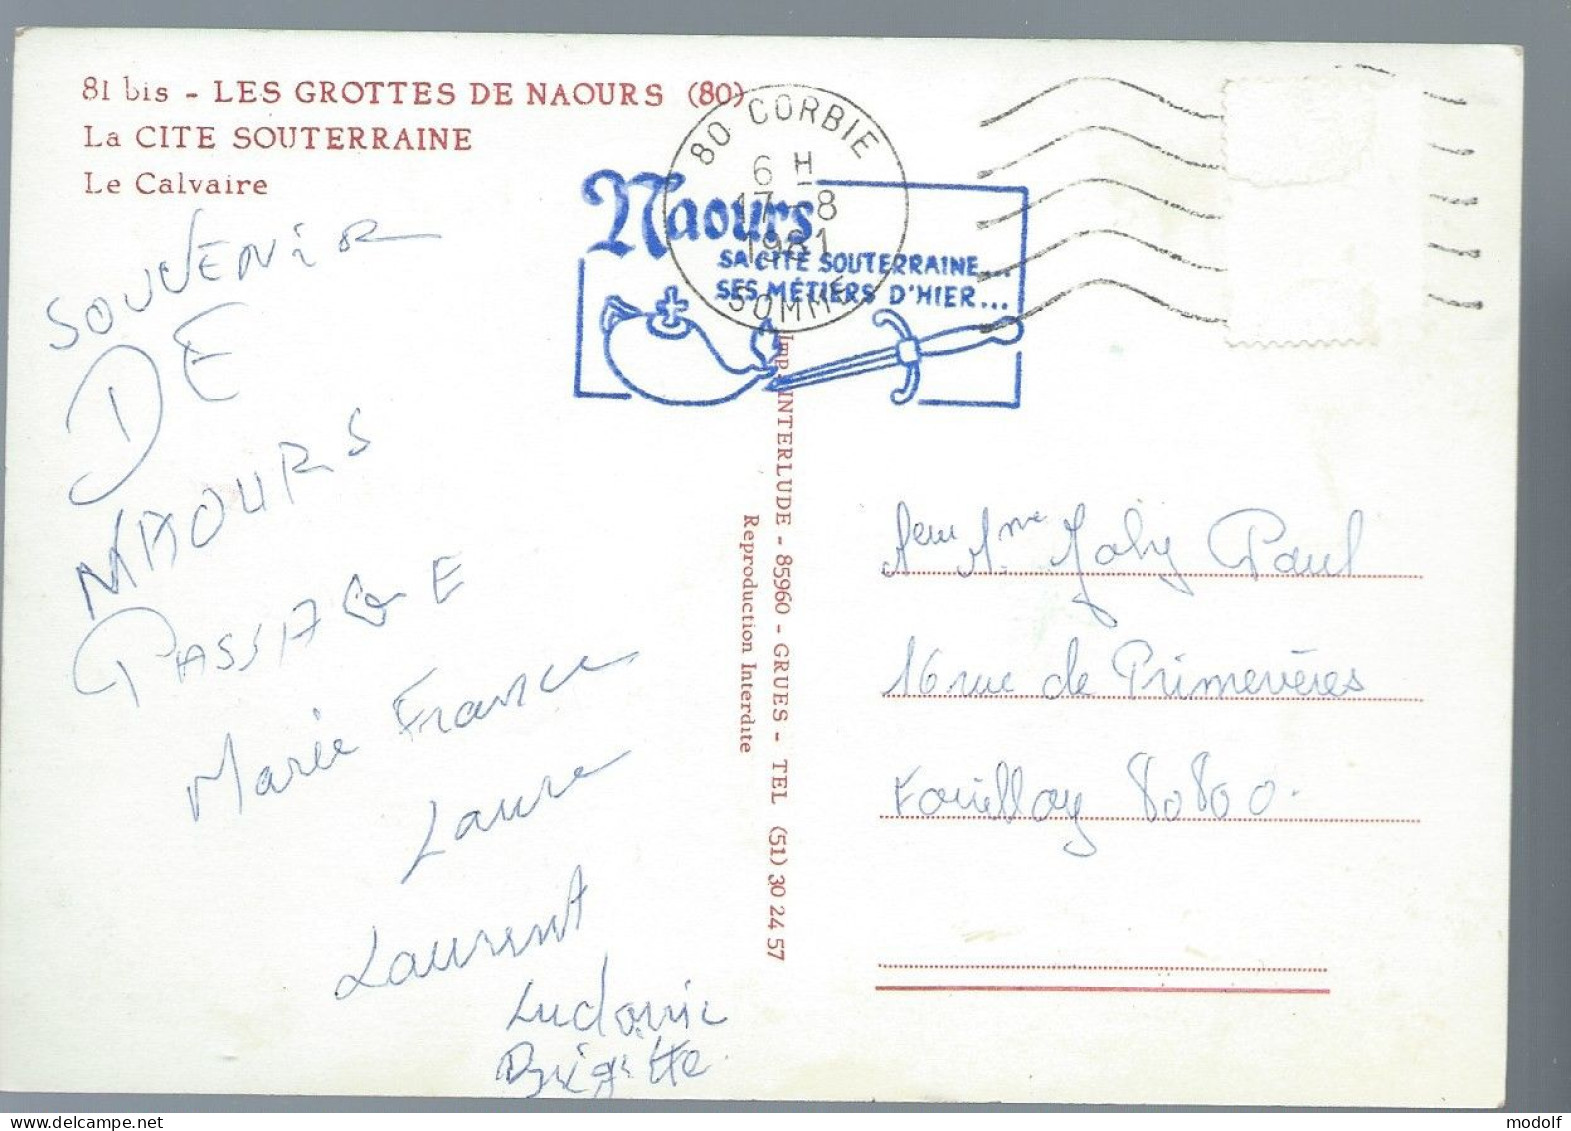 81 bis - LES GROTTES DE NAOURS (80)
La CITE SOUTERRAINE
Le Calvaire
80 CORBIE
6 H
17 - 8
1981
SOMME
Naours
SA CITÉ SOUTERRAINE...
SES MÉTIERS D'HIER...
SOUVENIR
DE
NAOURS
PASSAGE
Marie France
Laure
Laurent
Ludovic
Brigitte
Imp. INTERLUDE - 85960 - GRUES - TEL (51) 30 24 57
Reproduction Interdite
Mme Joly Paul
16 rue de Primevères
Fouilloy 80800.
modolf